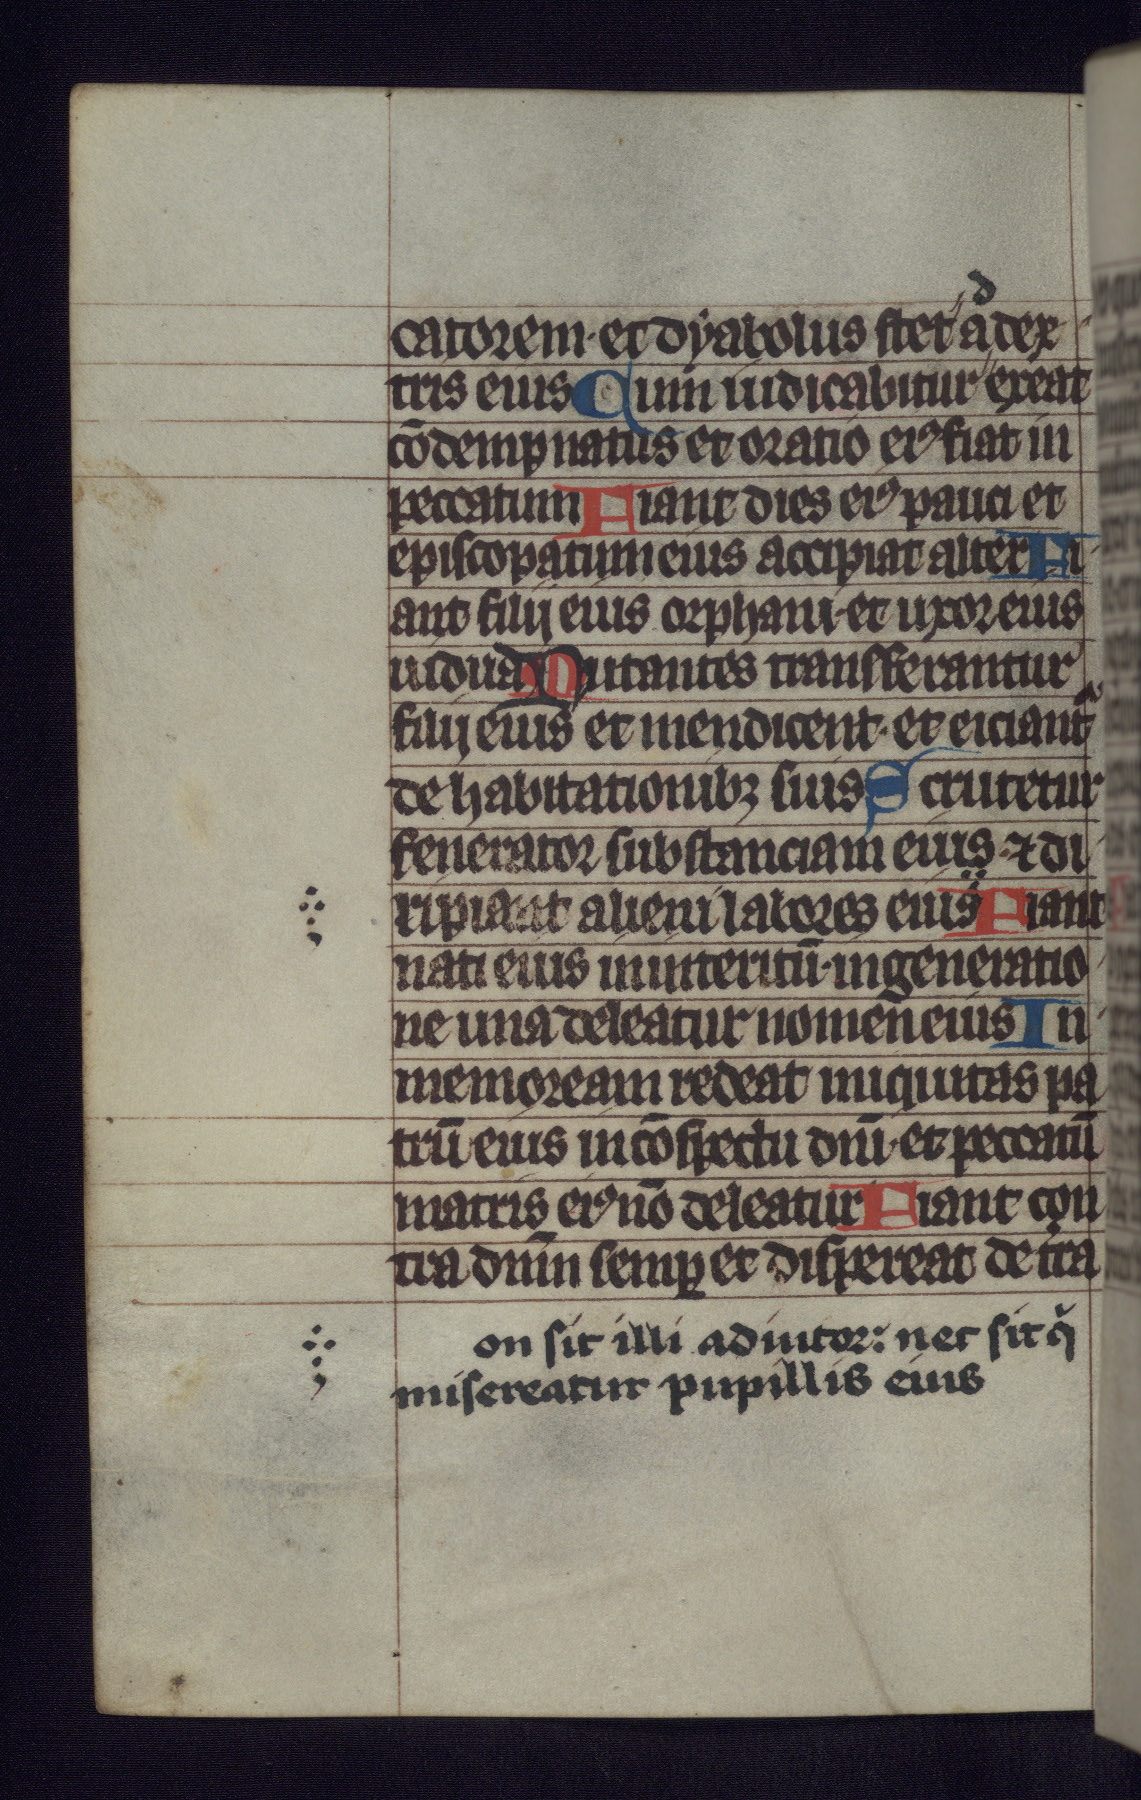 d
catorem· et dyabolus stet a dex
tris eius Cum iudicabitur exeat
cōdempnatus et oratio eiꝰ fiat in
peccatum Fiant dies eiꝰ pauci et
episcopatum eius accipiat alter Fi
ant filij eius orphani· et uxor eius
uidua Nutantes transferantur
filij eius et mendicent· et eiciantᷣ
de habitationibꝫ suis Scrutetur
fenerator substanciam eius· ⁊ di
ripiant alieni labores eius Fiant
nati eius in interitū· in generatio
ne una deleatur nomen eius In
memoream redeat iniquitas pa
trū eius in cōspectu dn̄i· et peccatū
matris eiꝰ nō deleatur Fiant con
tra dnm̄ semꝑ et dispereat de t̄ra
on sit illi adiutor: nec sit q̇
misereatur pupillis eius